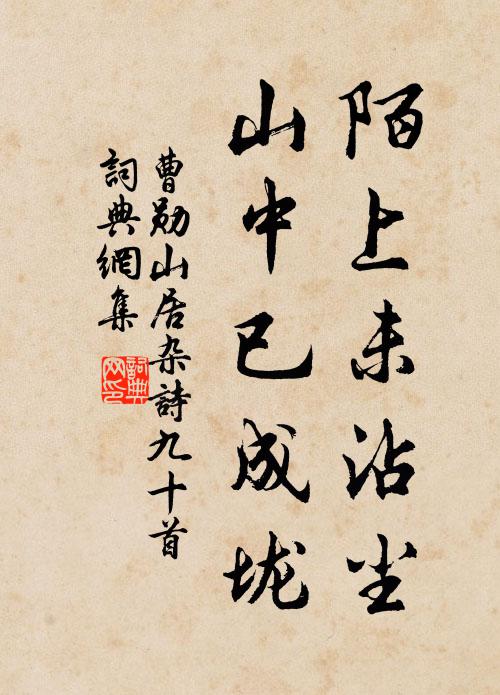 陌上未沾尘
山中已成垅
曹勋山居杂詩九十首
詞典網集
詞典
网印